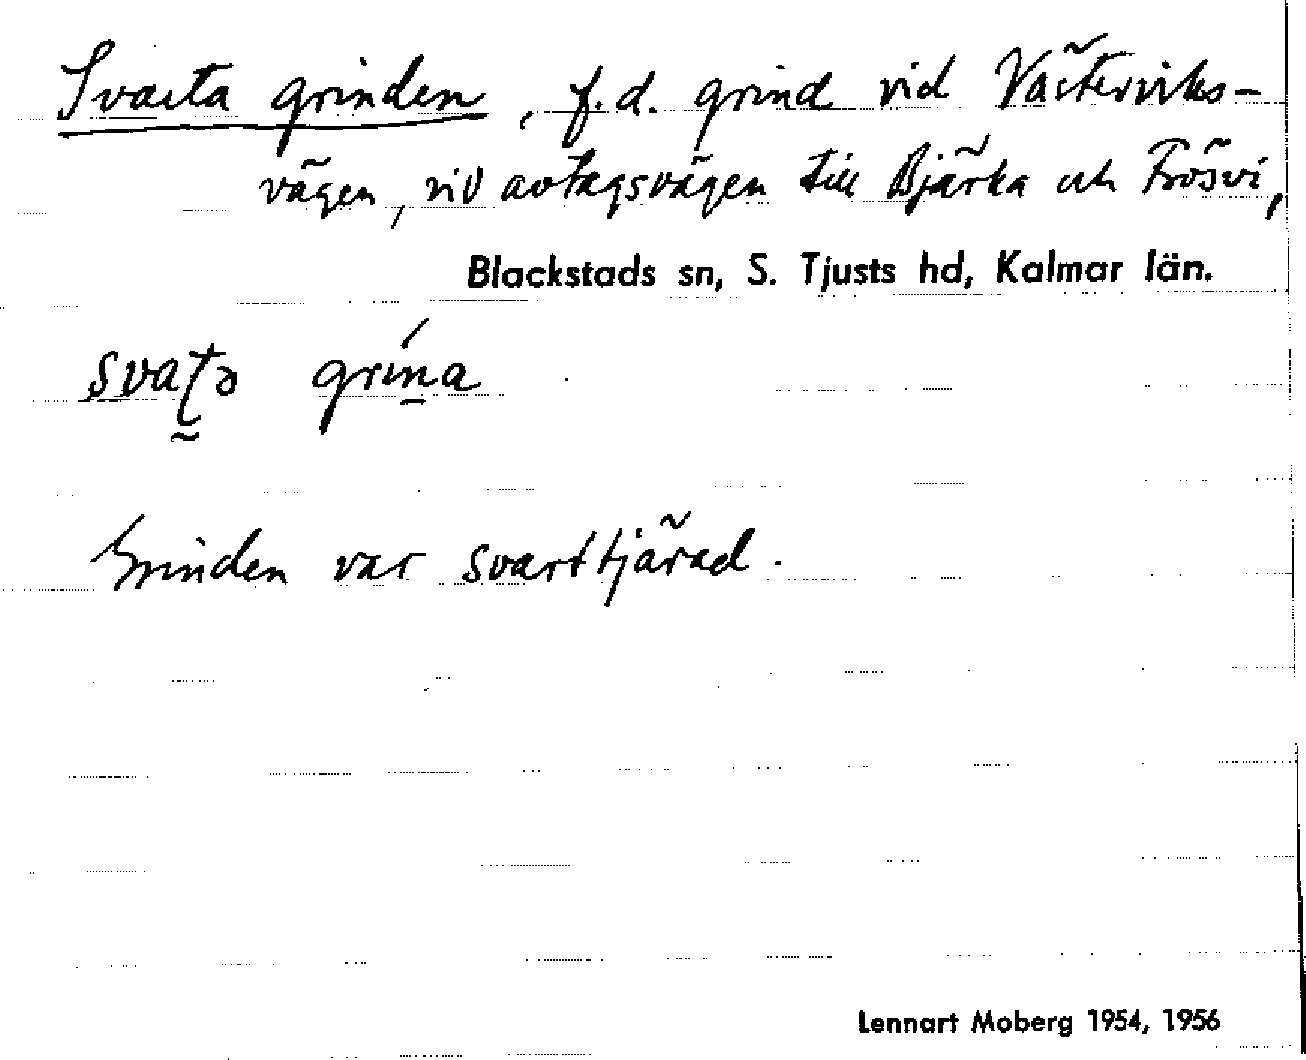 Svarta grinden, f.d. grind vid Västerviks-
vägen, vid avtagsvägen till Bjärka och Frösvi,
Blackstads sn, S. Tjusts hd, Kalmar län.
svaʈə grína
Grinden var svarttjärad.
Lennart Moberg 1954, 1956